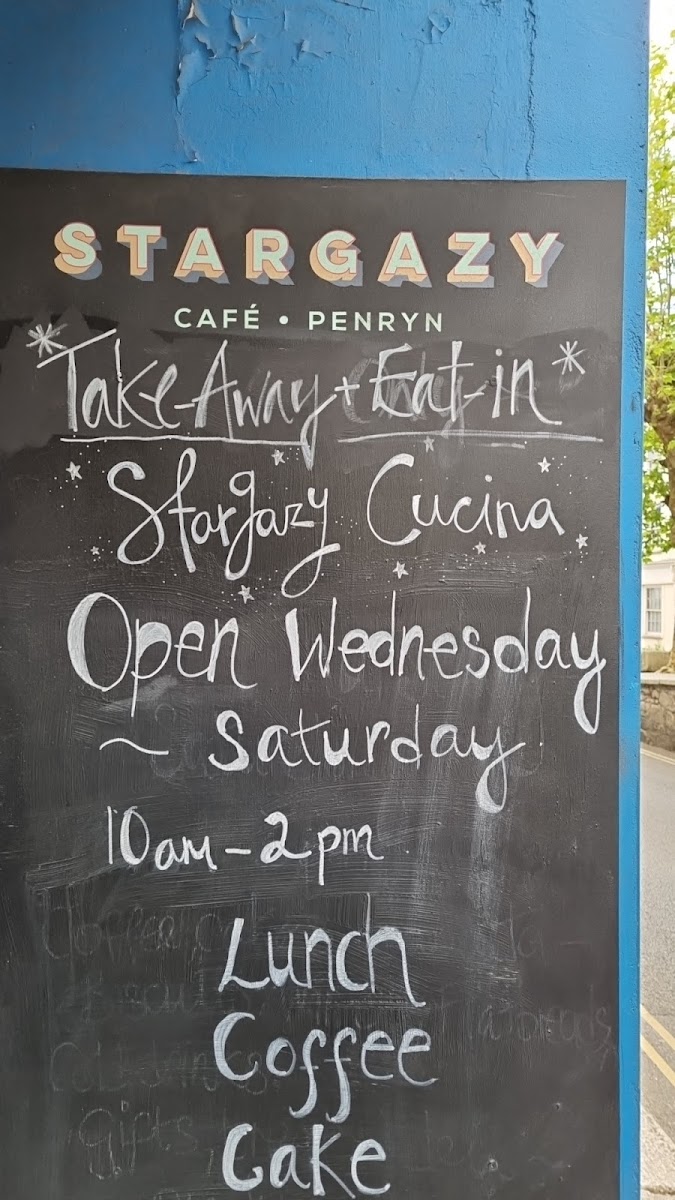 STARGAZY
CAFÉ • PENRYN
*Take-Away + Eat-in*
Stargazy Cucina
Open Wednesday
~ Saturday
10am - 2pm
Lunch
Coffee
Cake